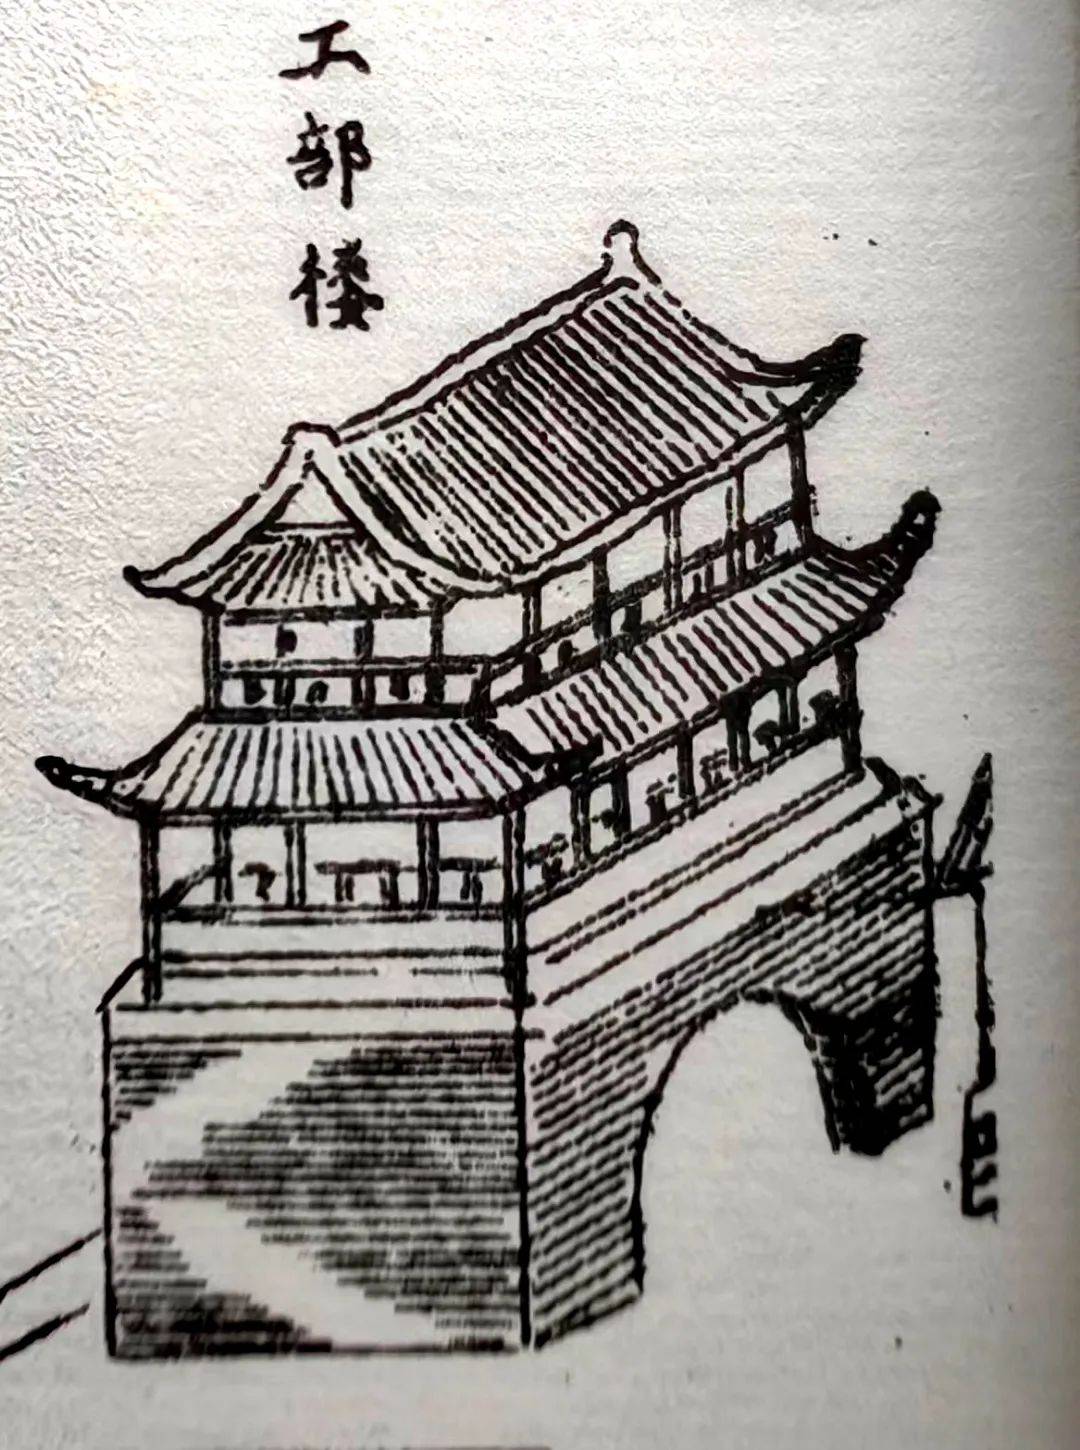 工部楼